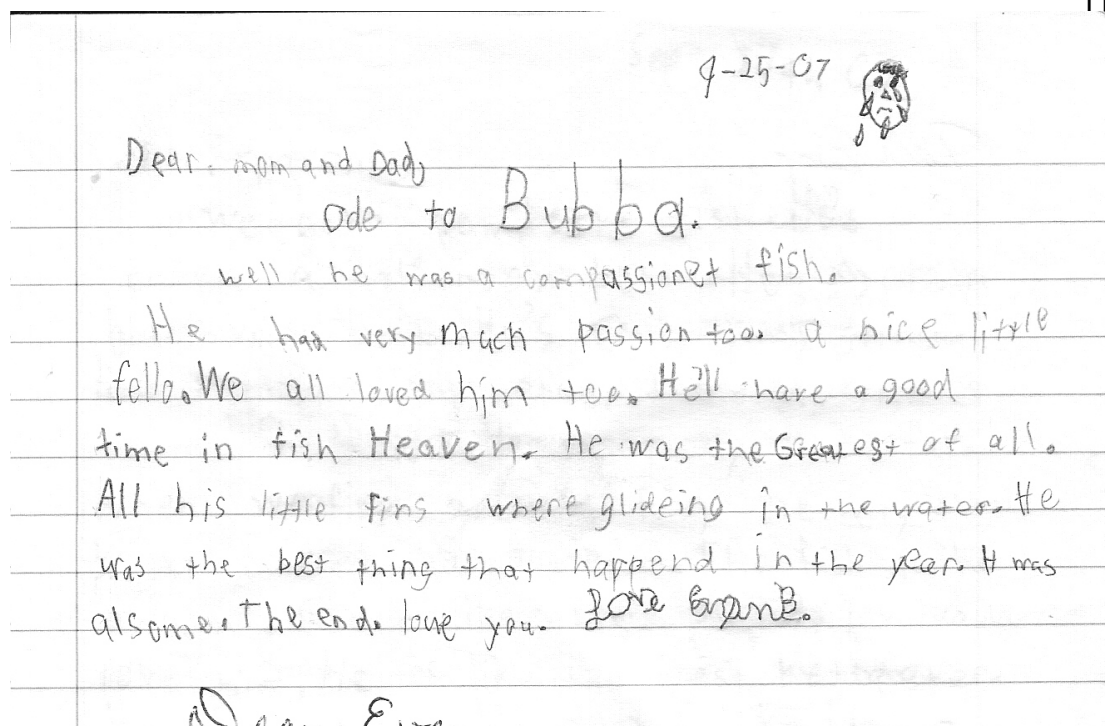 9-25-07
Dear mom and Dad,
ode to Bubba.
well he was a compassionet fish.
He had very much passion too. a nice little
fello. We all loved him too. He'll have a good
time in fish Heaven. He was the Greatest of all.
All his little fins where glideing in the water. He
was the best thing that happend in the year. It was
alsome. The end. love you. Love
Dear